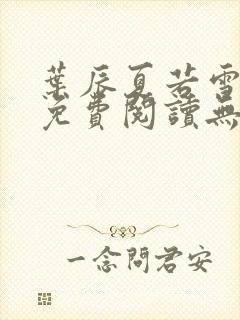 葉辰夏若雪
免費閱讀無
一念問君安